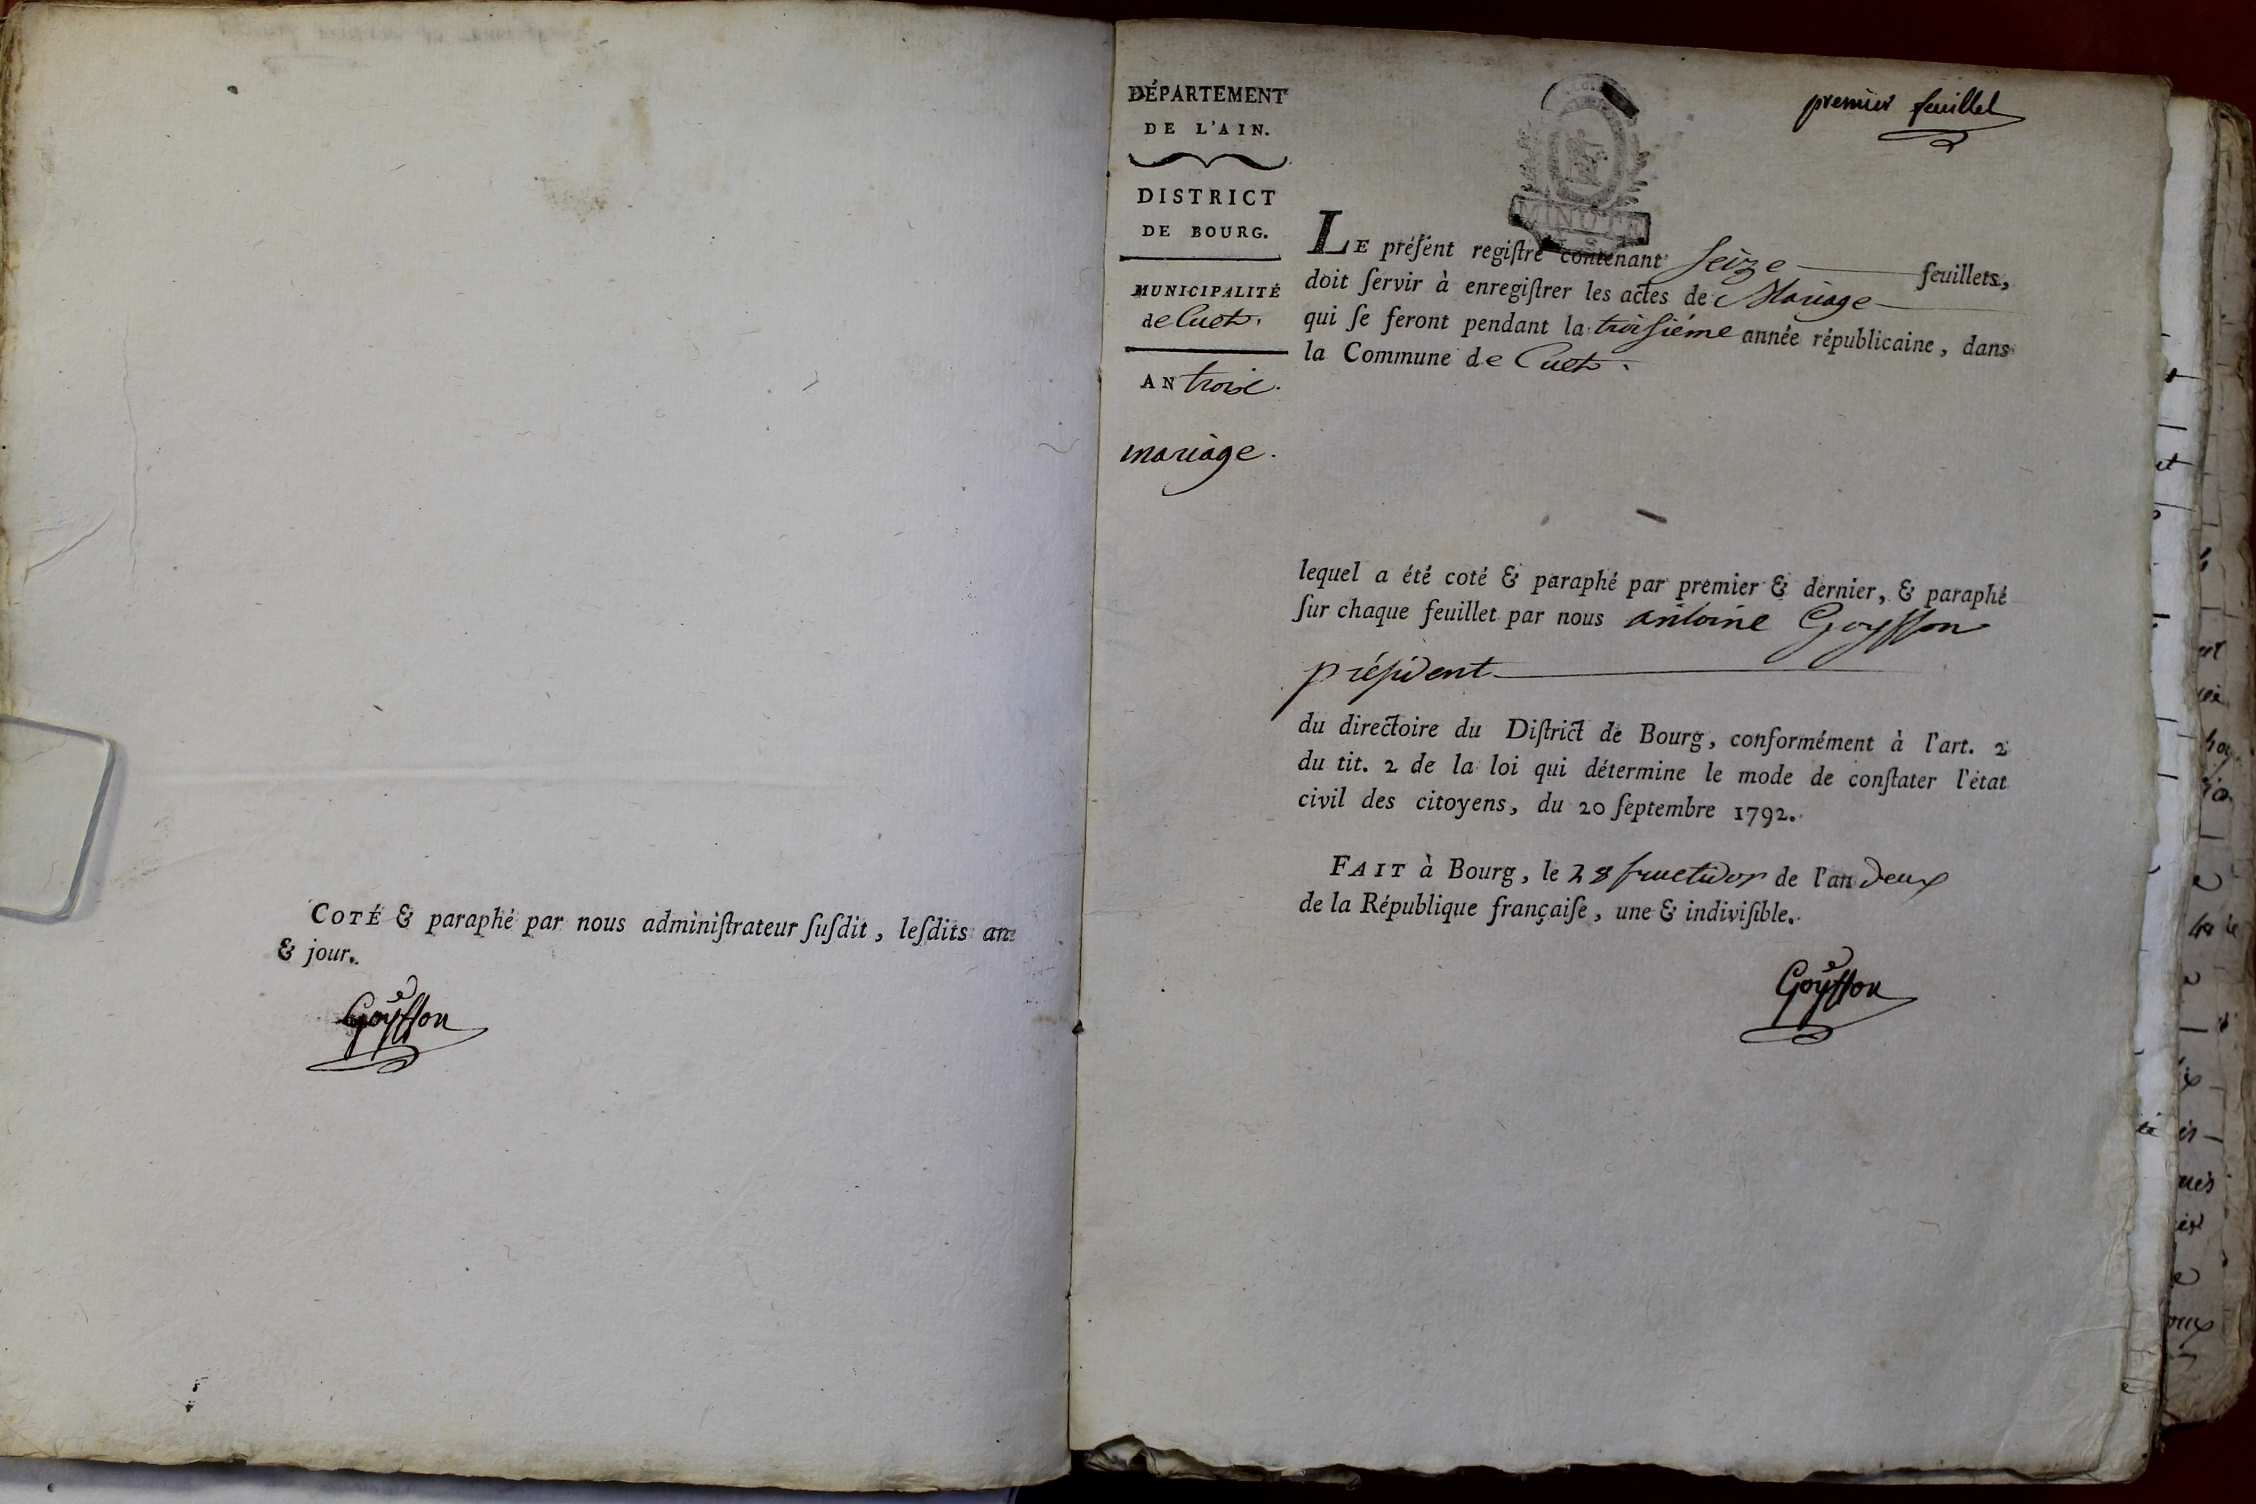 COTÉ & paraphé par nous adminiſtrateur ſuſdit, leſdits an
& jour.
Goyffon
premier feuillet
DÉPARTEMENT
DE L'AIN.
DISTRICT
DE BOURG.
MUNICIPALITÉ
de Cuet.
AN troix.
mariage.
MINUTE
LE préſent regiſtre contenant Seize feuillets,
doit ſervir à enregiſtrer les actes de Mariage
qui ſe feront pendant la troiſiéme année républicaine, dans
la Commune de Cuet.
lequel a été coté & paraphé par premier & dernier, & paraphé
ſur chaque feuillet par nous antoine Goyffon
préſident
du directoire du Diſtrict de Bourg, conformément à l'art. 2
du tit. 2 de la loi qui détermine le mode de conſtater l'état
civil des citoyens, du 20 ſeptembre 1792.
FAIT à Bourg, le 28 fructidor de l'an deux
de la République françaiſe, une & indiviſible.
Goyffon